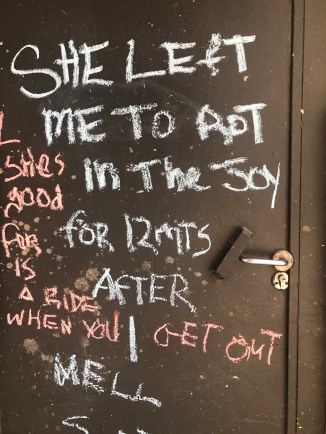 SHE LEFT
ME TO ROT
in The JOY
for 12MTS
AFTER
I
MELL
Shes
good
FOR
IS
A RIDE
WHEN YOU GET OUT